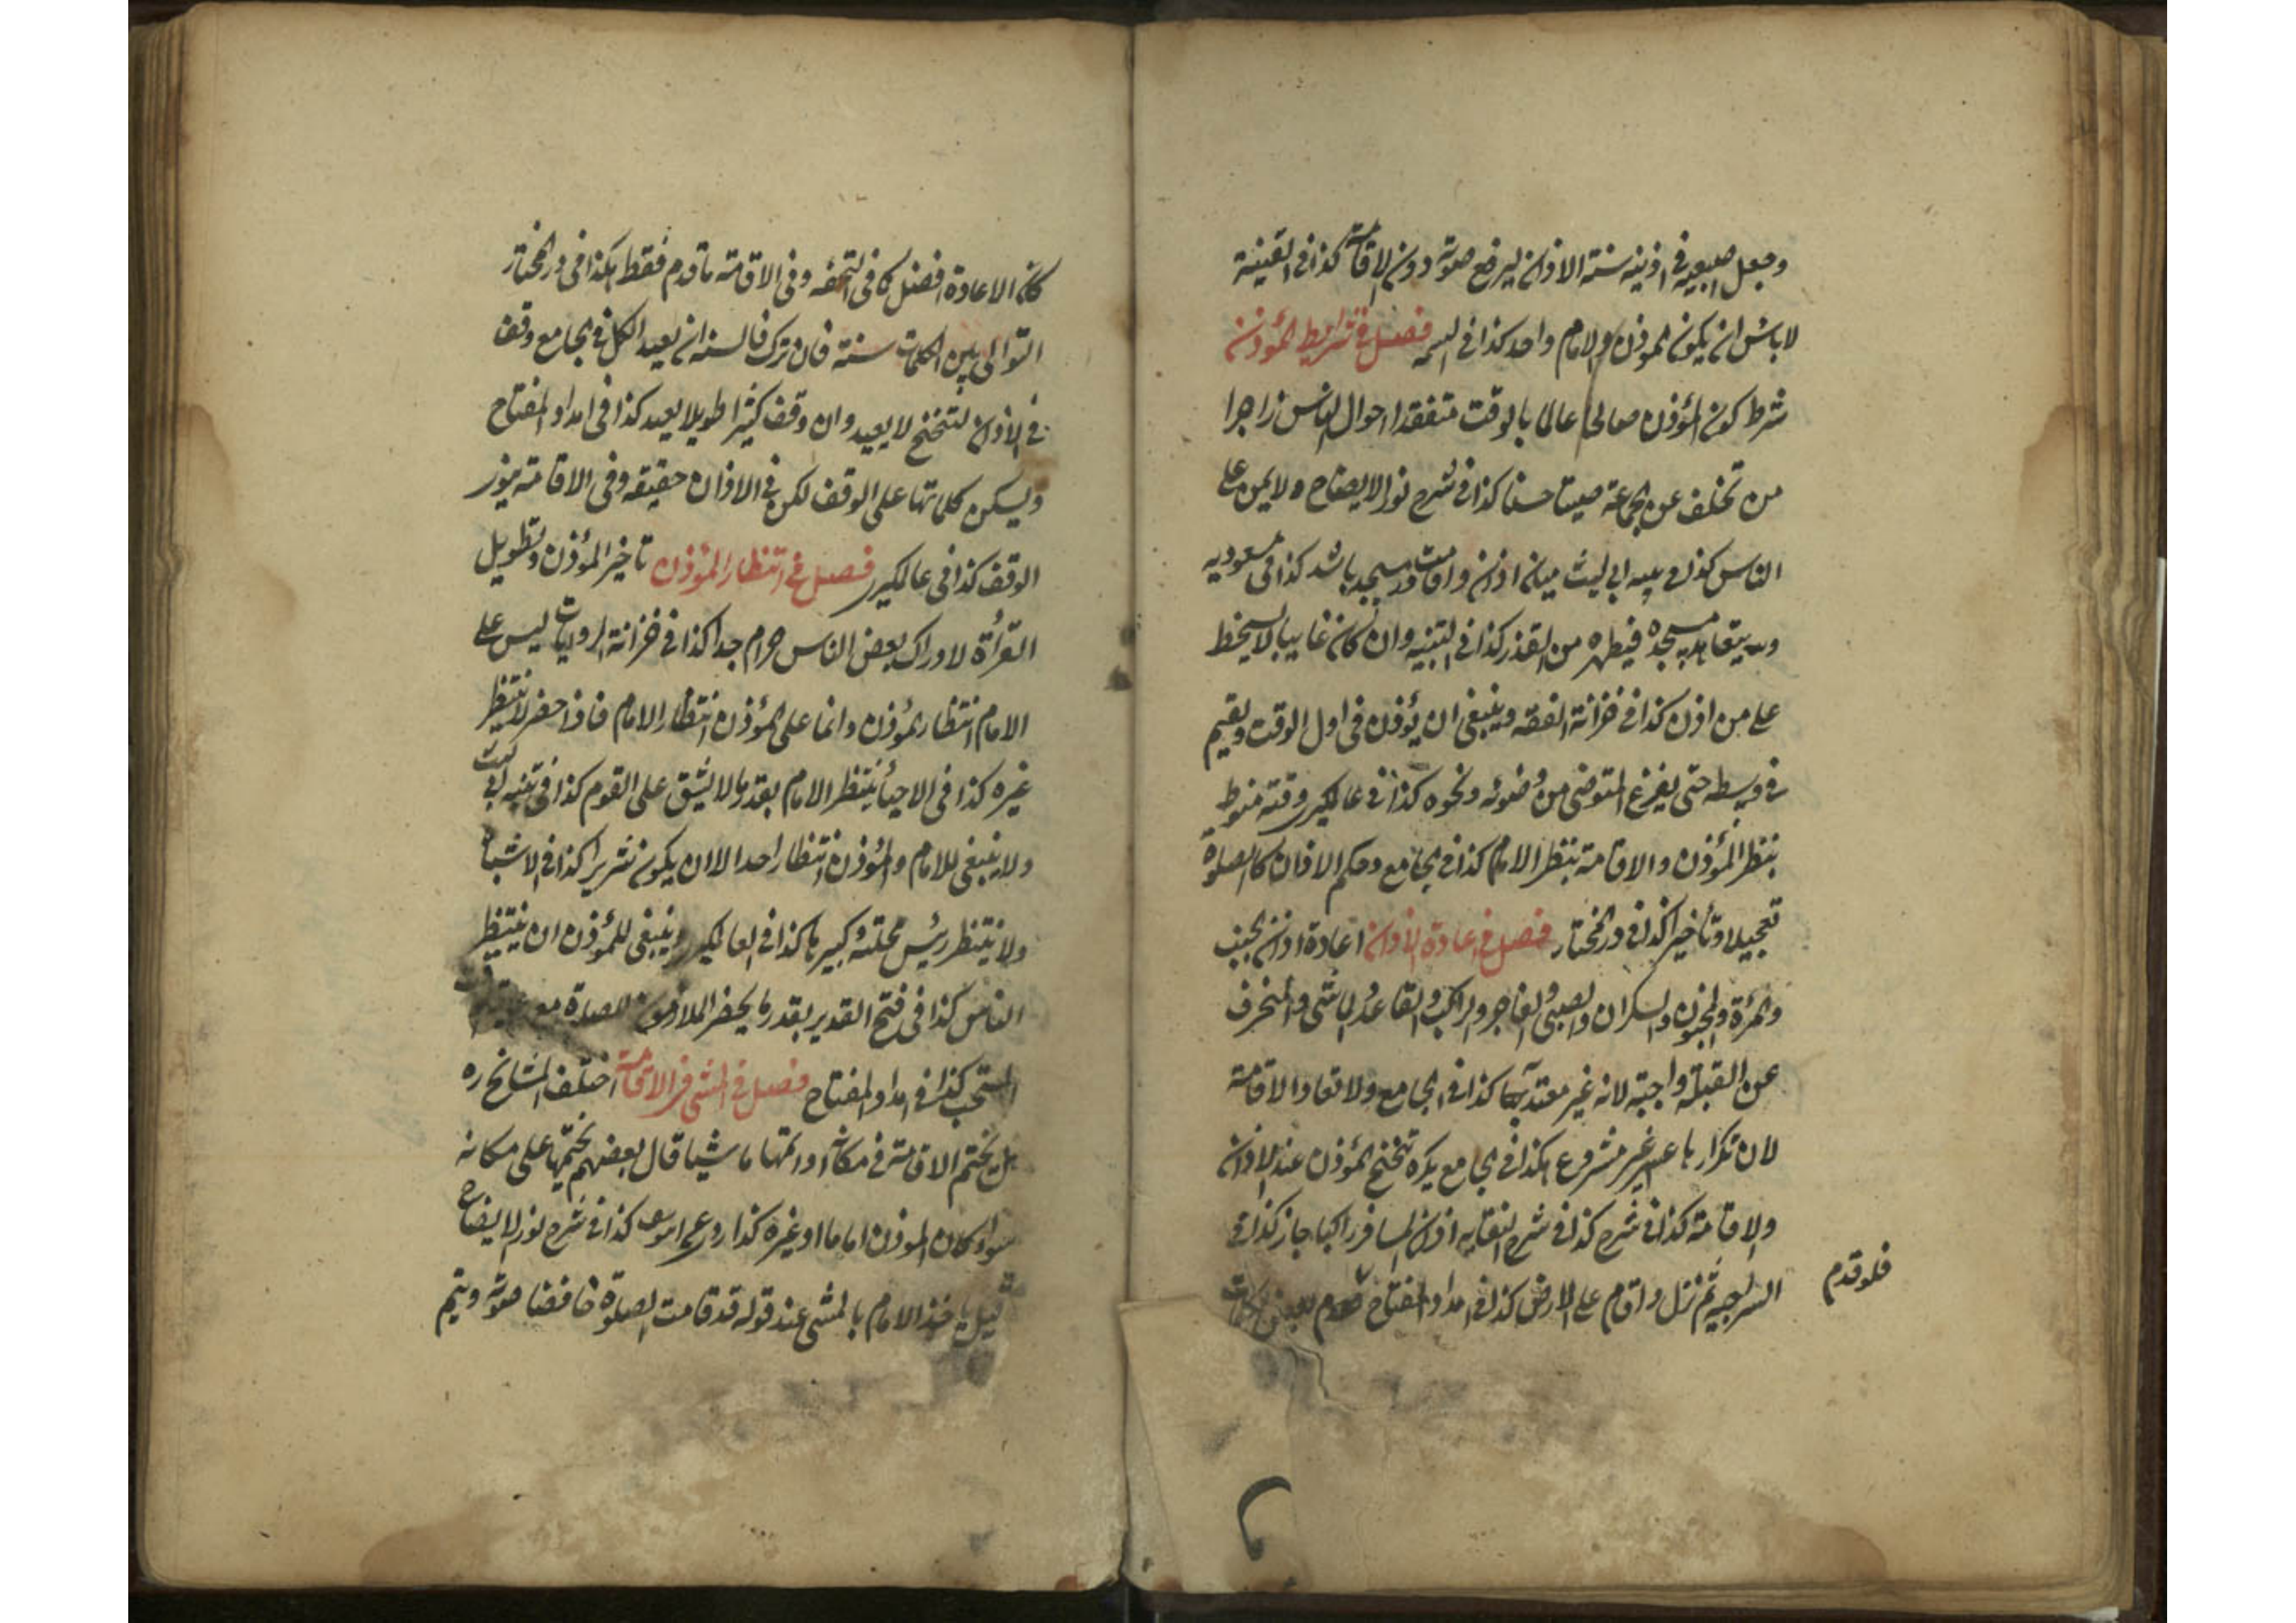 وجعل اصبعيه في اذنيه سنة الاذان ليرفع صوته دون الاقامة كذا في القينة
لا باس ان يكون الموذن والامام واحد كذا في فصل في شرايط المؤذن
شرط كون المؤذن صالحا عالما بالوقت متفقدا احوال الناس زاجرا
من تخلف عن الجماعة صيتا حسنا كذا في شرح نور الايضاح ولا يمن على
الناس كذا في ابي ليث ميان اذان واقامت در مسجد باشد كذا في مسعوديه
ويتعاهد مسجده فيطهره من القذر كذا في التنبيه وان كان غايبا لا يسخط
على من اذن كذا في خزانة الفقه وينبغي ان يؤذن في اول الوقت ويقيم
في وسطه حتى يفرغ المتوضي من وضوئه ونحوه كذا في عالمكير وقته منوط
بنظر المؤذن والاقامة بنظر الامام كذا في الجامع وحكم الاذان كالصلوة
تعجيلا وتأخيرا كذا في در المختار فصل في اعادة الاذان اعادة اذان الجنب
والمرءة والمجنون والسكران والصبي والفاجر والراكب والقاعد والماشي والمنحرف
عن القبلة واجبة لانه غير معتد بها كذا في الجامع ولا تعاد الاقامة
لان تكرارها غير مشروع هكذا في الجامع يكره تنحنح المؤذن عند الاذان
والاقامة كذا في شرح كذا في شرح النقايه اذان المسافر راكبا جاز كذا في
السراجيه ثم نزل واقام على الارض كذا في امداد المفتاح قدم بعض كلمات
فلو قدم
كان الاعادة افضل كما في التحفه وفي الاقامة ما قدم فقط هكذا في در المختار
التوالي بين الكلمات سنة فان ترك فالسنه ان يعيد الكل في الجامع وقف
في الاذان لتنحنح لا يعيد وان وقف كثيرا طويلا يعيد كذا في امداد المفتاح
ويسكن كلماتها على الوقف لكن في الاذان حقيقه وفي الاقامة ينوي
الوقف كذا في عالمكير فصل في انتظار المؤذن تاخير المؤذن وتطويل
القرأة لادراك بعض الناس حرام جدا كذا في خزانة الروايات ليس على
الامام انتظار المؤذن وانما على المؤذن انتظار الامام فاذا حضر لا ينتظر
غيره كذا في الاحياء ينتظر الامام بقدر ما لا يشق على القوم كذا في تنبيه ابي ليث
ولا ينبغي للامام والمؤذن انتظار احدا الا ان يكون شريرا كذا في الاشباه
ولا ينتظر رئيس محلته وكبيرها كذا في العالمكير وينبغي للمؤذن ان ينتظر
الناس كذا في فتح القدير بقدر ما يحضر الملازمون للصلوة مع
المستحب كذا في امداد المفتاح فصل في المشي في الاقامة اختلف المشايخ ره
هل يختم الاقامة في مكانه او اتمها ماشيا قال بعضهم يختمها على مكانه
سواء كان الموذن اماما او غيره كذا روي عن ابي يوسف كذا في شرح نور الايضاح
قيل ياخذ الامام بالمشي عند قوله قد قامت الصلوة خافضا صوته ويتم